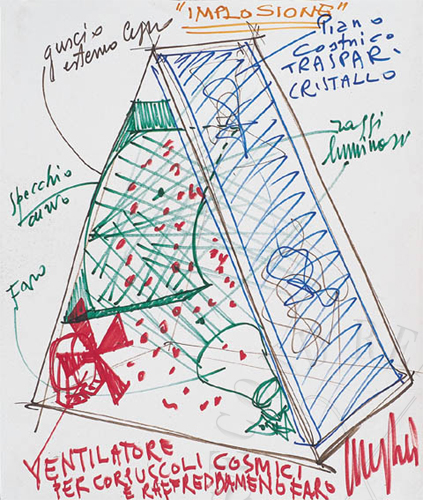 "IMPLOSIONE"
guscio
esterno
Piano
Cosmico
TRASPAR.
CRISTALLO
raggi
luminosi
specchio
curvo
Faro
VENTILATORE
PER CORPUSCOLI COSMICI
E RAFFREDDAMENO FARO